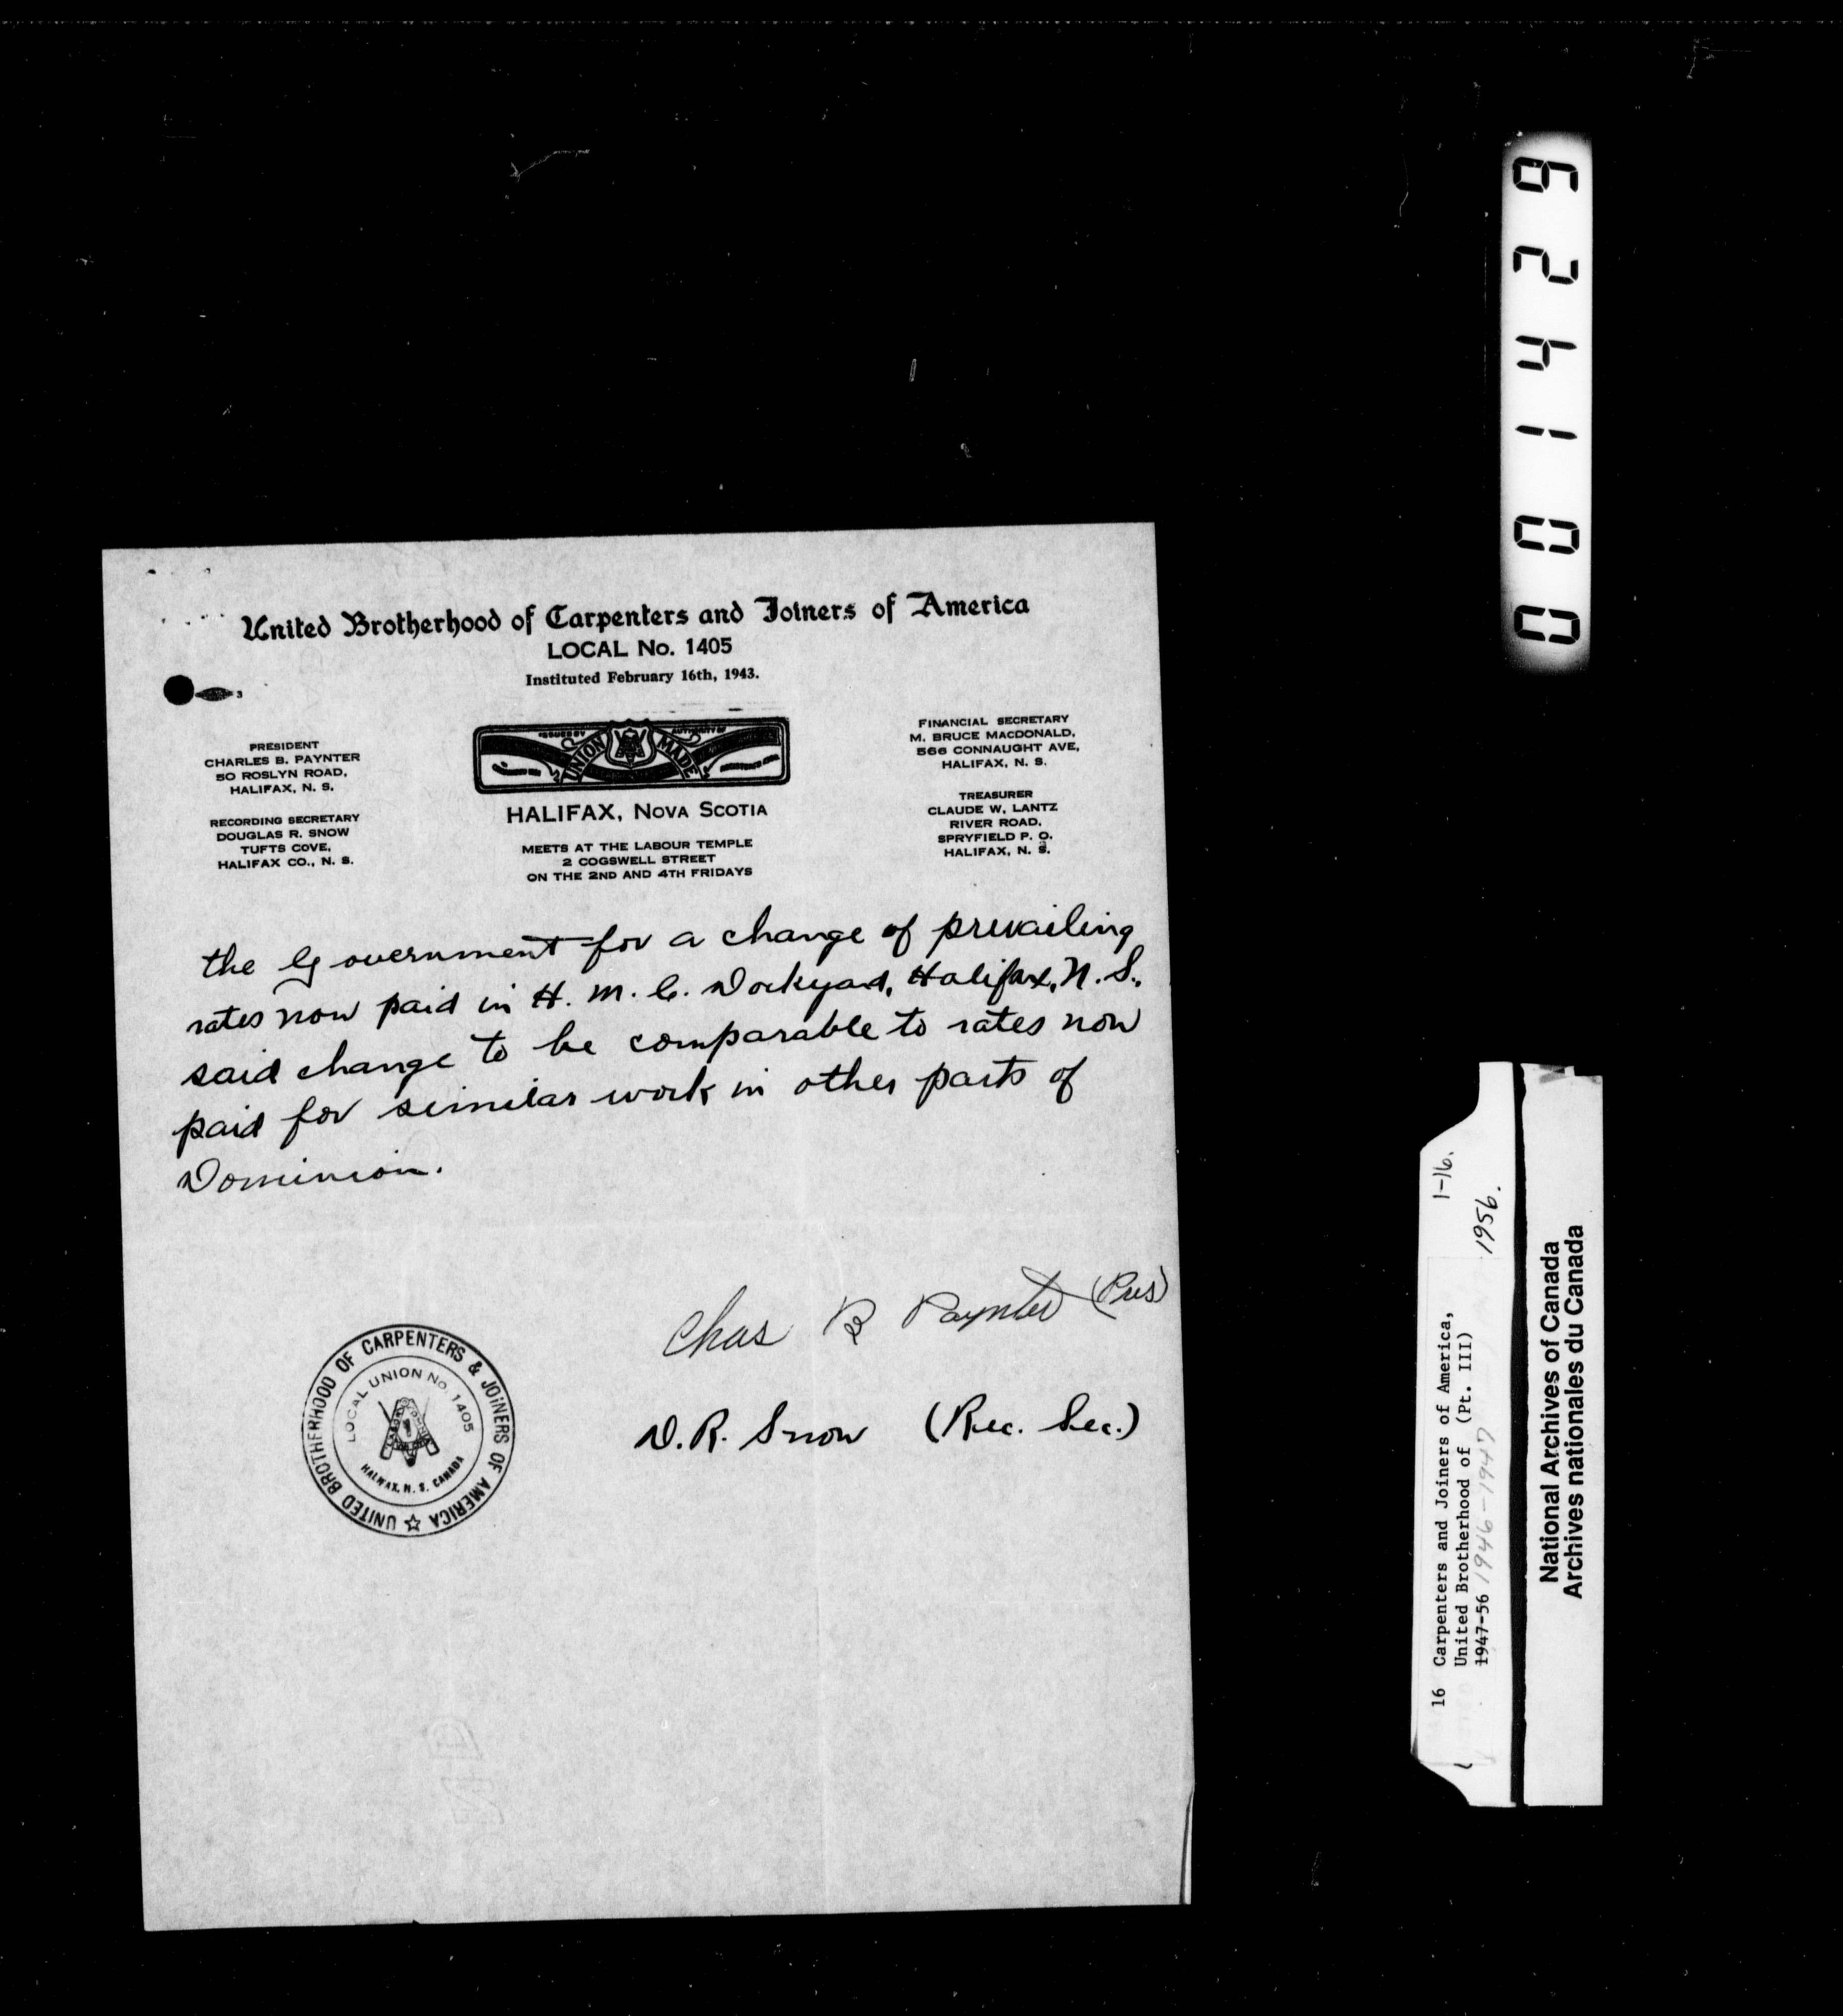 United Brotherhood of Carpenters and Joiners of America
LOCAL No. 1405
Instituted February 16th, 1943.
3
PRESIDENT
CHARLES B. PAYNTER
50 ROSLYN ROAD,
HALIFAX, N. S.
RECORDING SECRETARY
DOUGLAS R. SNOW
TUFTS COVE,
HALIFAX CO., N. S.
ISSUED BY AUTHORITY OF
UNION MADE
HALIFAX, NOVA SCOTIA
MEETS AT THE LABOUR TEMPLE
2 COGSWELL STREET
ON THE 2ND AND 4TH FRIDAYS
FINANCIAL SECRETARY
M. BRUCE MACDONALD,
566 CONNAUGHT AVE,
HALIFAX, N. S.
TREASURER
CLAUDE W. LANTZ
RIVER ROAD,
SPRYFIELD P. O.
HALIFAX, N. S.
the Government for a change of prevailing
rates now paid in H. M. C. Dockyard, Halifax, N. S.,
said change to be comparable to rates now
paid for similar work in other parts of
Dominion.
Chas B Paynter (Pres)
D. R. Snow (Rec. Sec.)
UNITED BROTHERHOOD OF CARPENTERS & JOINERS OF AMERICA
LOCAL UNION No. 1405
HALIFAX, N. S. CANADA
001429
16 Carpenters and Joiners of America, 1-16.
United Brotherhood of (Pt. III)
1947-56 1946-1947 1956.
National Archives of Canada
Archives nationales du Canada